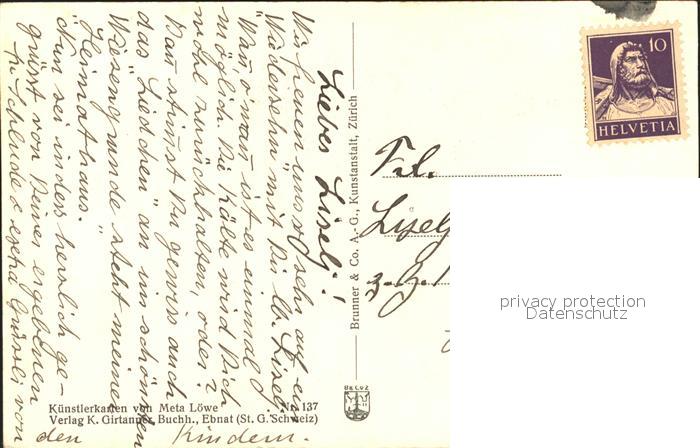 Liebes Liselj!
Wir freuen uns sehr auf ein
Wiedersehn mit Dir lb. Lisel.
Wann, o wann ist es einmal
möglich. Die Kälte wird Dich
wohl zurückhalten, oder?
Dann stimst Du gewiss auch
das Liedchen an "im schönsten
Wiesengrunde steht meiner
Heimathaus."
Nun sei indess herzlich ge-
grüsst von Deiner ergebenen
von
den Kindern.
Brunner & Co. A.-G., Kunstanstalt, Zürich
Künstlerkarten von Meta Löwe Nr. 137
Verlag K. Girtanner, Buchh., Ebnat (St. G. Schweiz)
BRCOZ
10
HELVETIA
Frl.
Liselj
z. Zt.
privacy protection
Datenschutz